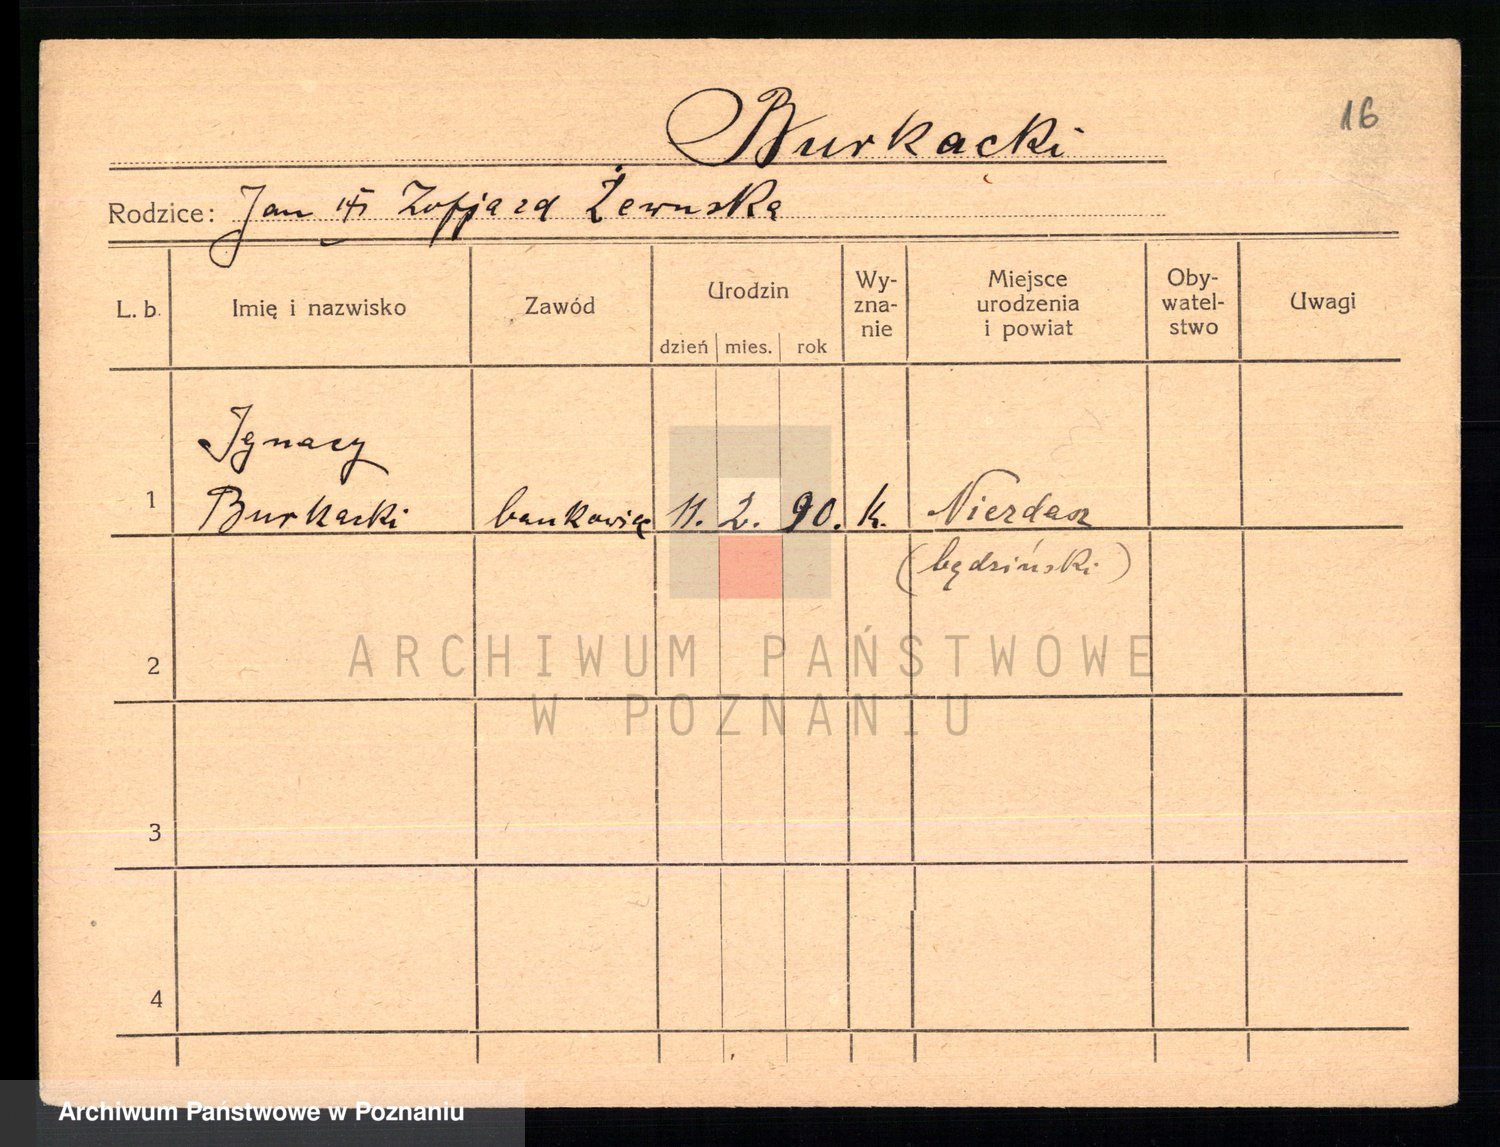 16
Burkacki
Rodzice: Jan i Zofja zd Żewuska
L. b. Imię i nazwisko Zawód Urodzin dzień mies. rok Wy-zna-nie Miejsce urodzenia i powiat Oby-watel-stwo Uwagi
Ignacy
1 Burkacki bankowiec 11. 2. 90. k. Nierdasz
(będziński)
2
ARCHIWUM PAŃSTWOWE
W POZNANIU
3
4
Archiwum Państwowe w Poznaniu